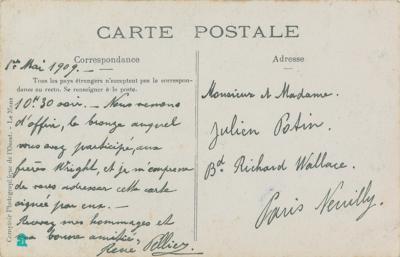 CARTE POSTALE
Correspondance
Adresse
Tous les pays étrangers n'acceptent pas la correspon-
dance au recto. Se renseigner à la poste.
1er Mai 1909. —
10H 30 soir. — Nous venons
d'offrir, le bronze auquel
vous avez participé, aux
frères Wright, et je m'empresse
de vous adresser cette carte
signée par eux. —
Recevez mes hommages et
ma bonne amitié,
René Pellier
Monsieur et Madame.
Julien Potin.
Bd Richard Wallace.
Paris Neuilly.
Comptoir Photographique de l'Ouest. - Le Mans